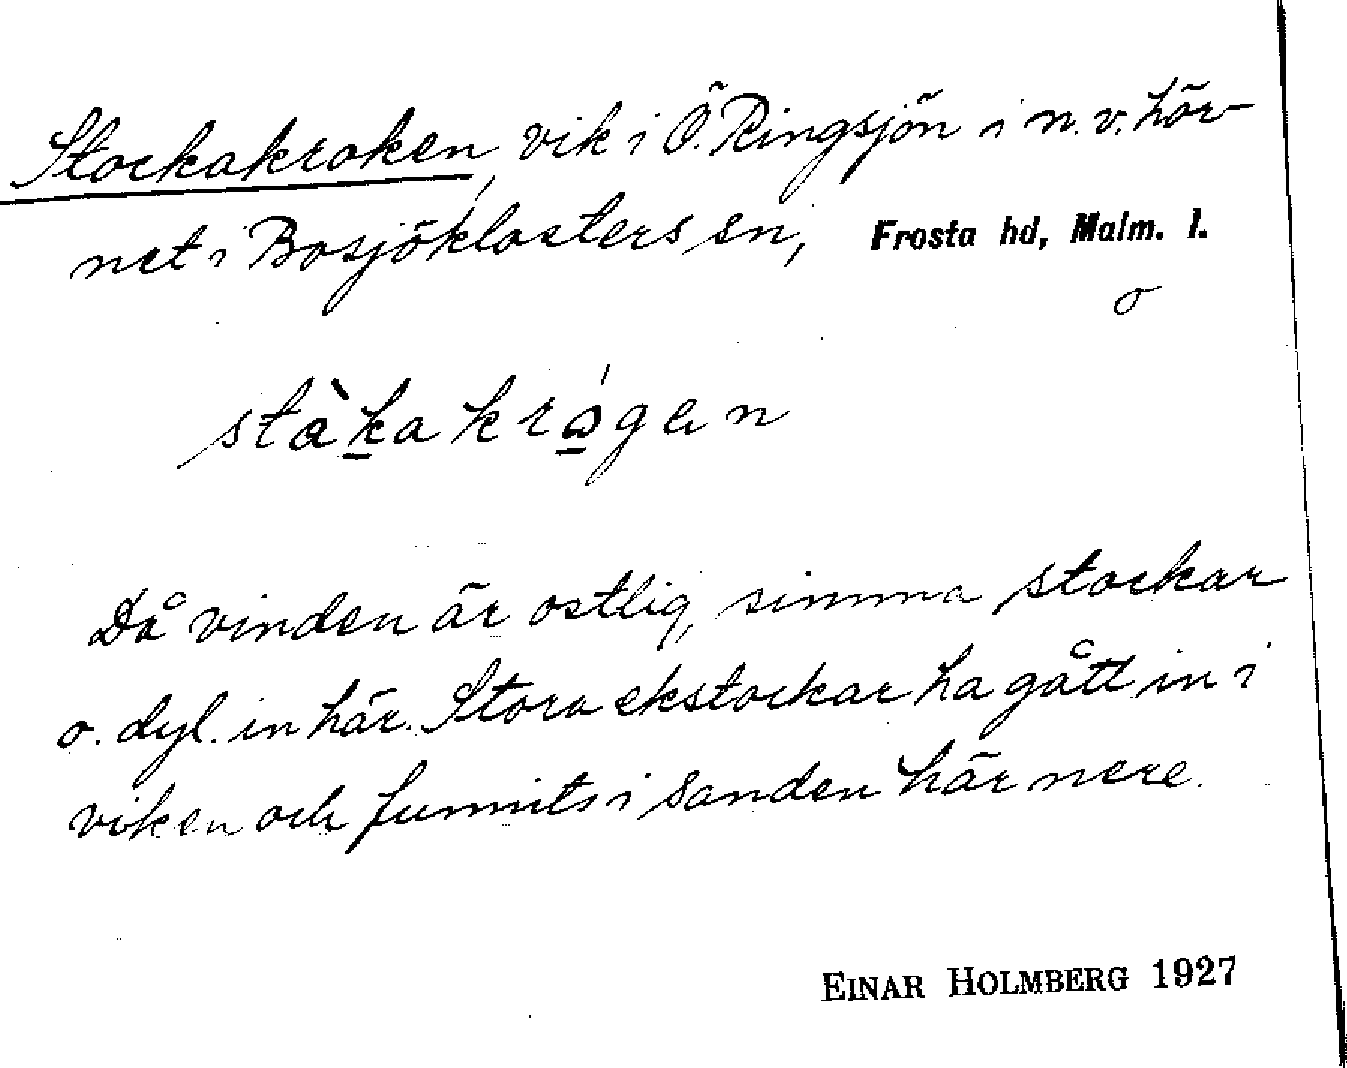 Stockakroken, vik i Ö. Ringsjön i n.v. hör-
net i Bosjöklosters sn, Frosta hd, Malm. l.
o
stàkakrógen
Då vinden är ostlig, simma stockar
o. dyl. in här. Stora ekstockar ha gått in i
viken och funnits i sanden här nere.
EINAR HOLMBERG 1927